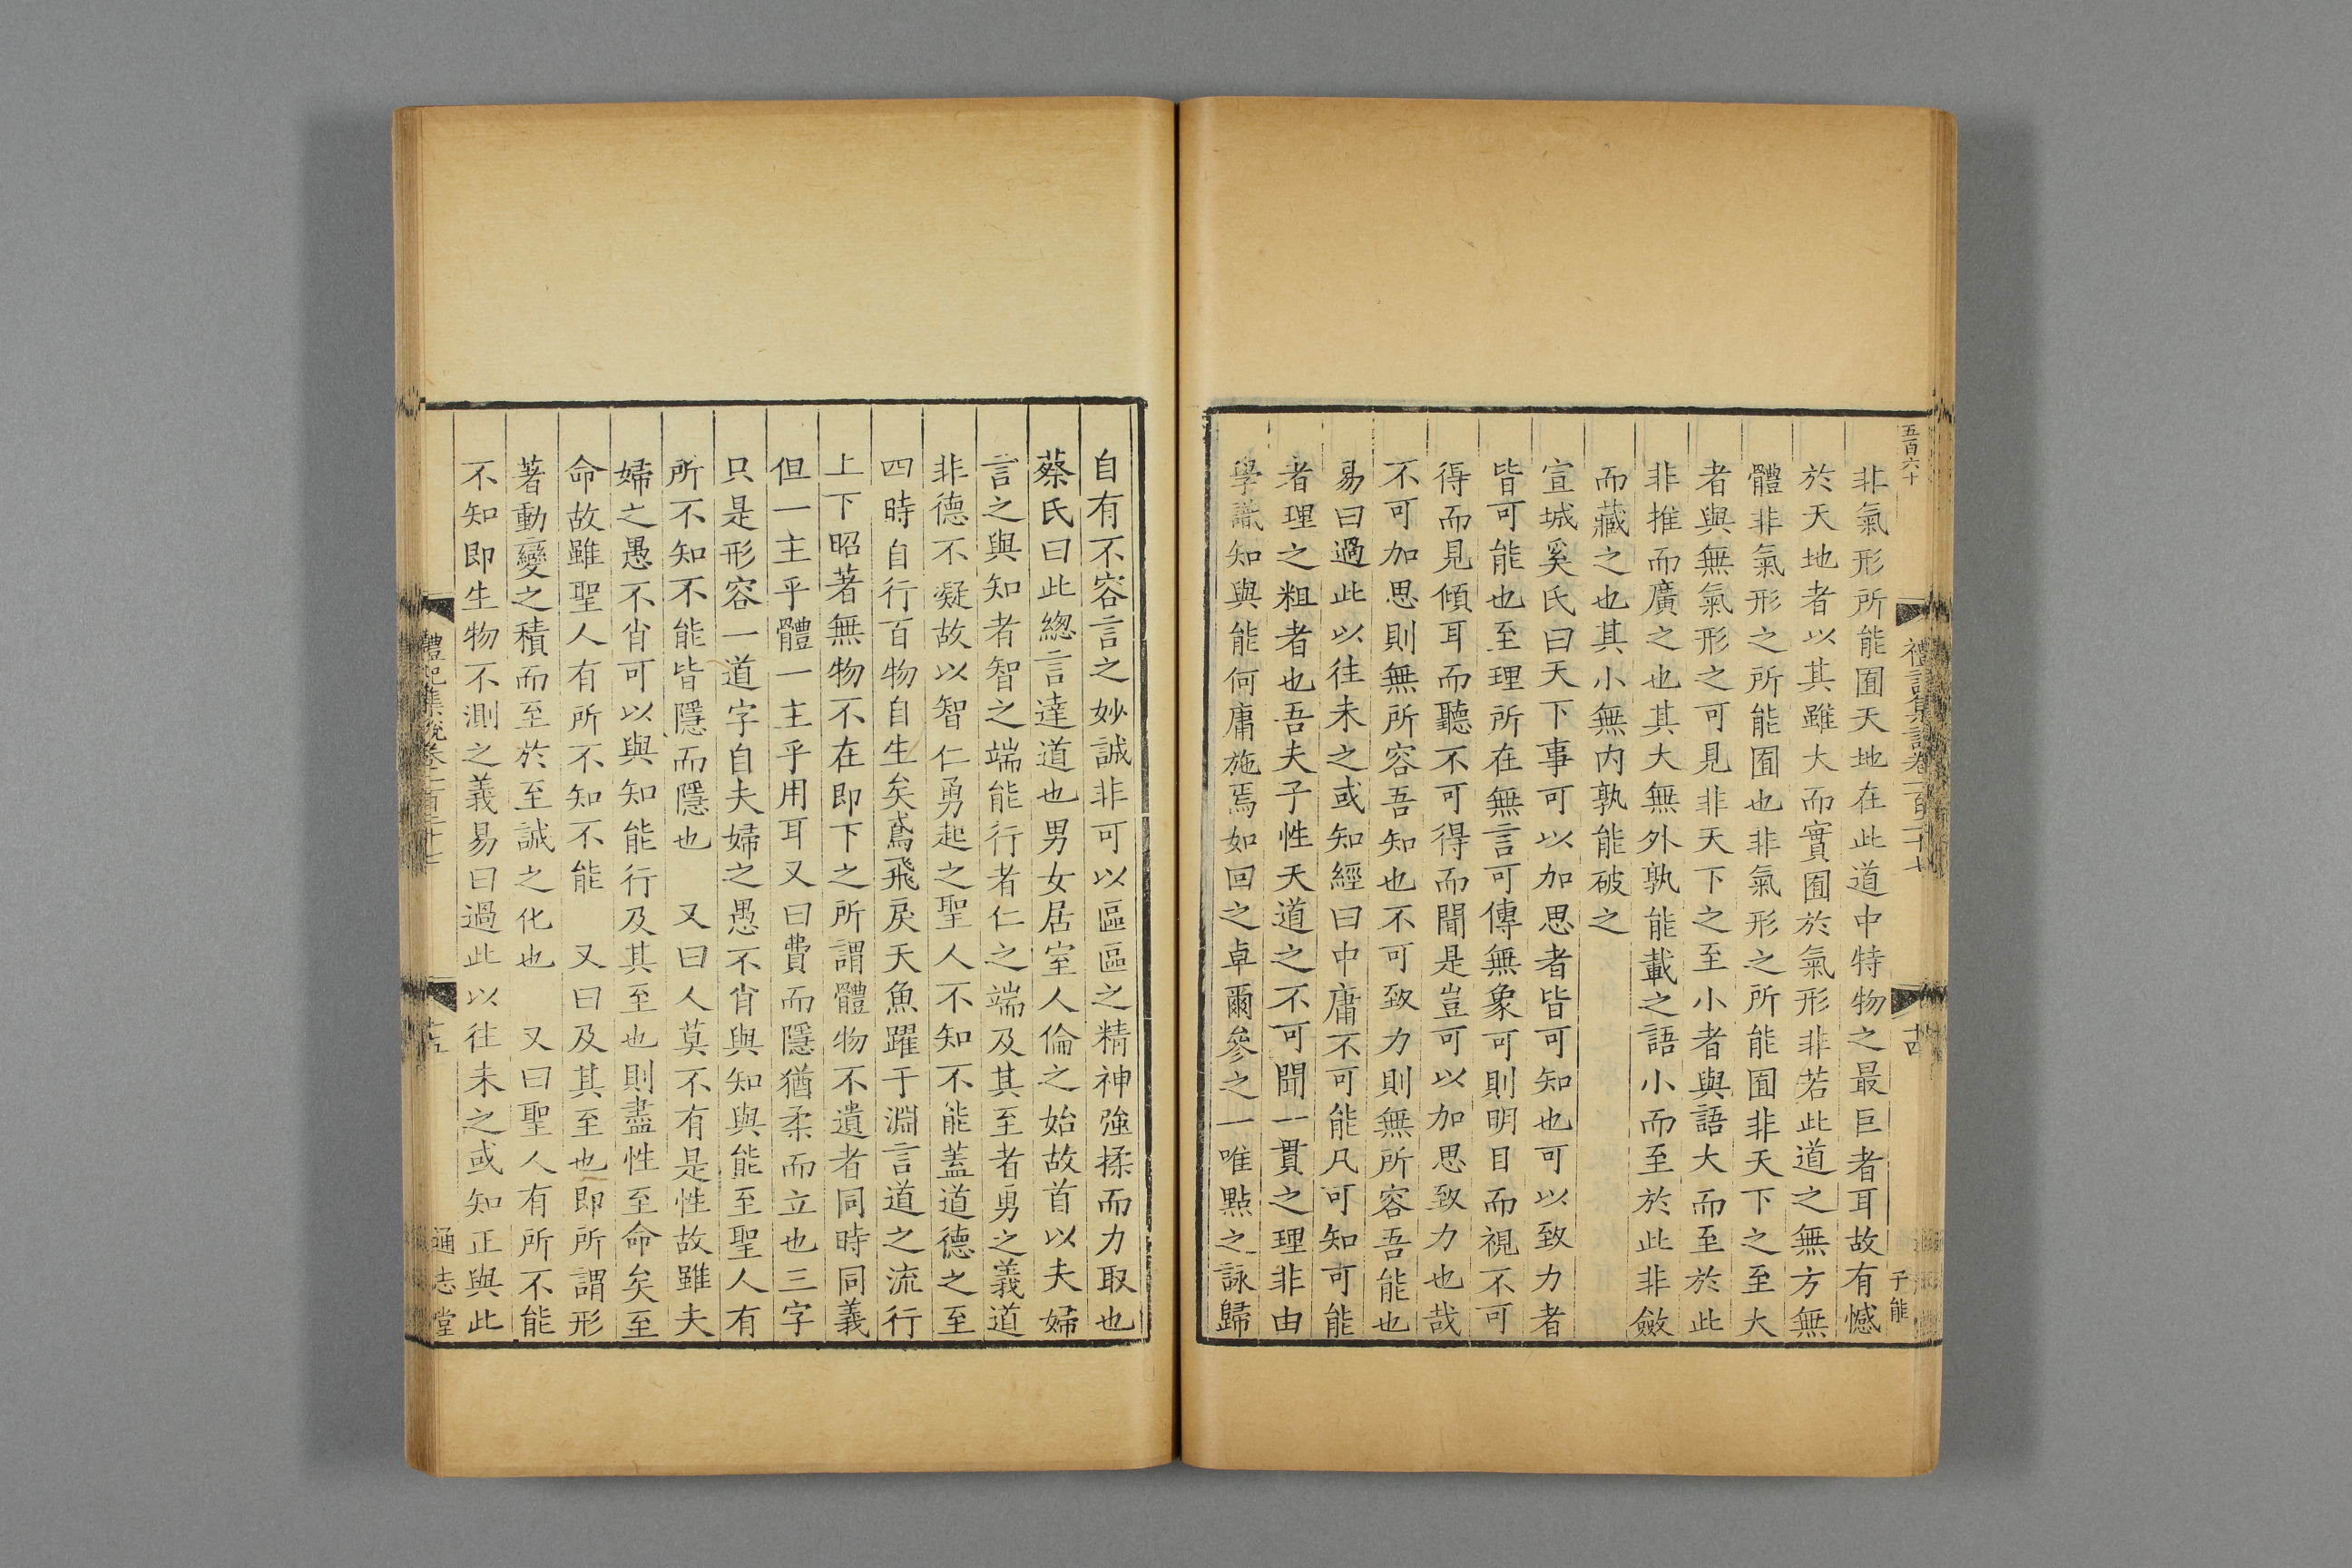 五百六十
禮記集說卷一百二十七
子能
非氣形所能囿天地在此道中特物之最巨者耳故有憾
於天地者以其雖大而實囿於氣形非若此道之無方無
體非氣形之所能囿也非氣形之所能囿非天下之至大
者與無氣形之可見非天下之至小者與語大而至於此
非推而廣之也其大無外孰能載之語小而至於此非斂
而藏之也其小無內孰能破之
宣城奚氏曰天下事可以加思者皆可知也可以致力者
皆可能也至理所在無言可傳無象可則明目而視不可
得而見傾耳而聽不可得而聞是豈可以加思致力也哉
不可加思則無所容吾知也不可致力則無所容吾能也
易曰過此以往未之或知經曰中庸不可能凡可知可能
者理之粗者也吾夫子性天道之不可聞一貫之理非由
學識知與能何庸施焉如回之卓爾參之一唯點之詠歸
自有不容言之妙誠非可以區區之精神強揉而力取也
蔡氏曰此總言達道也男女居室人倫之始故首以夫婦
言之與知者智之端能行者仁之端及其至者勇之義道
非德不凝故以智仁勇起之聖人不知不能蓋道德之至
四時自行百物自生矣鳶飛戾天魚躍于淵言道之流行
上下昭著無物不在即下之所謂體物不遺者同時同義
但一主乎體一主乎用耳又曰費而隱猶柔而立也三字
只是形容一道字自夫婦之愚不肖與知與能至聖人有
所不知不能皆隱而隱也　又曰人莫不有是性故雖夫
婦之愚不肖可以與知能行及其至也則盡性至命矣至
命故雖聖人有所不知不能　又曰及其至也即所謂形
著動變之積而至於至誠之化也　又曰聖人有所不能
不知即生物不測之義易曰過此以往未之或知正與此
禮記集說卷一百二十七
通志堂